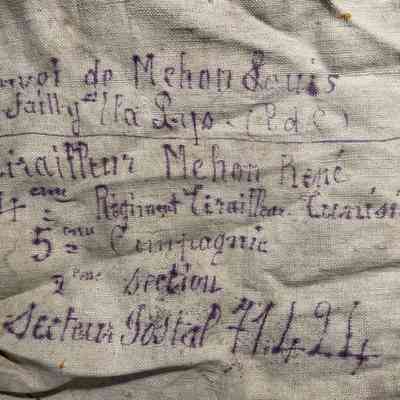 nvoi de Mehon Louis
Sailly s/ la Lys. (P.d.C)
irailleur Mehon René
4eme Régiment Tirailleur Tunisi
5eme Compagnie
2eme section
Secteur Postal 71.424